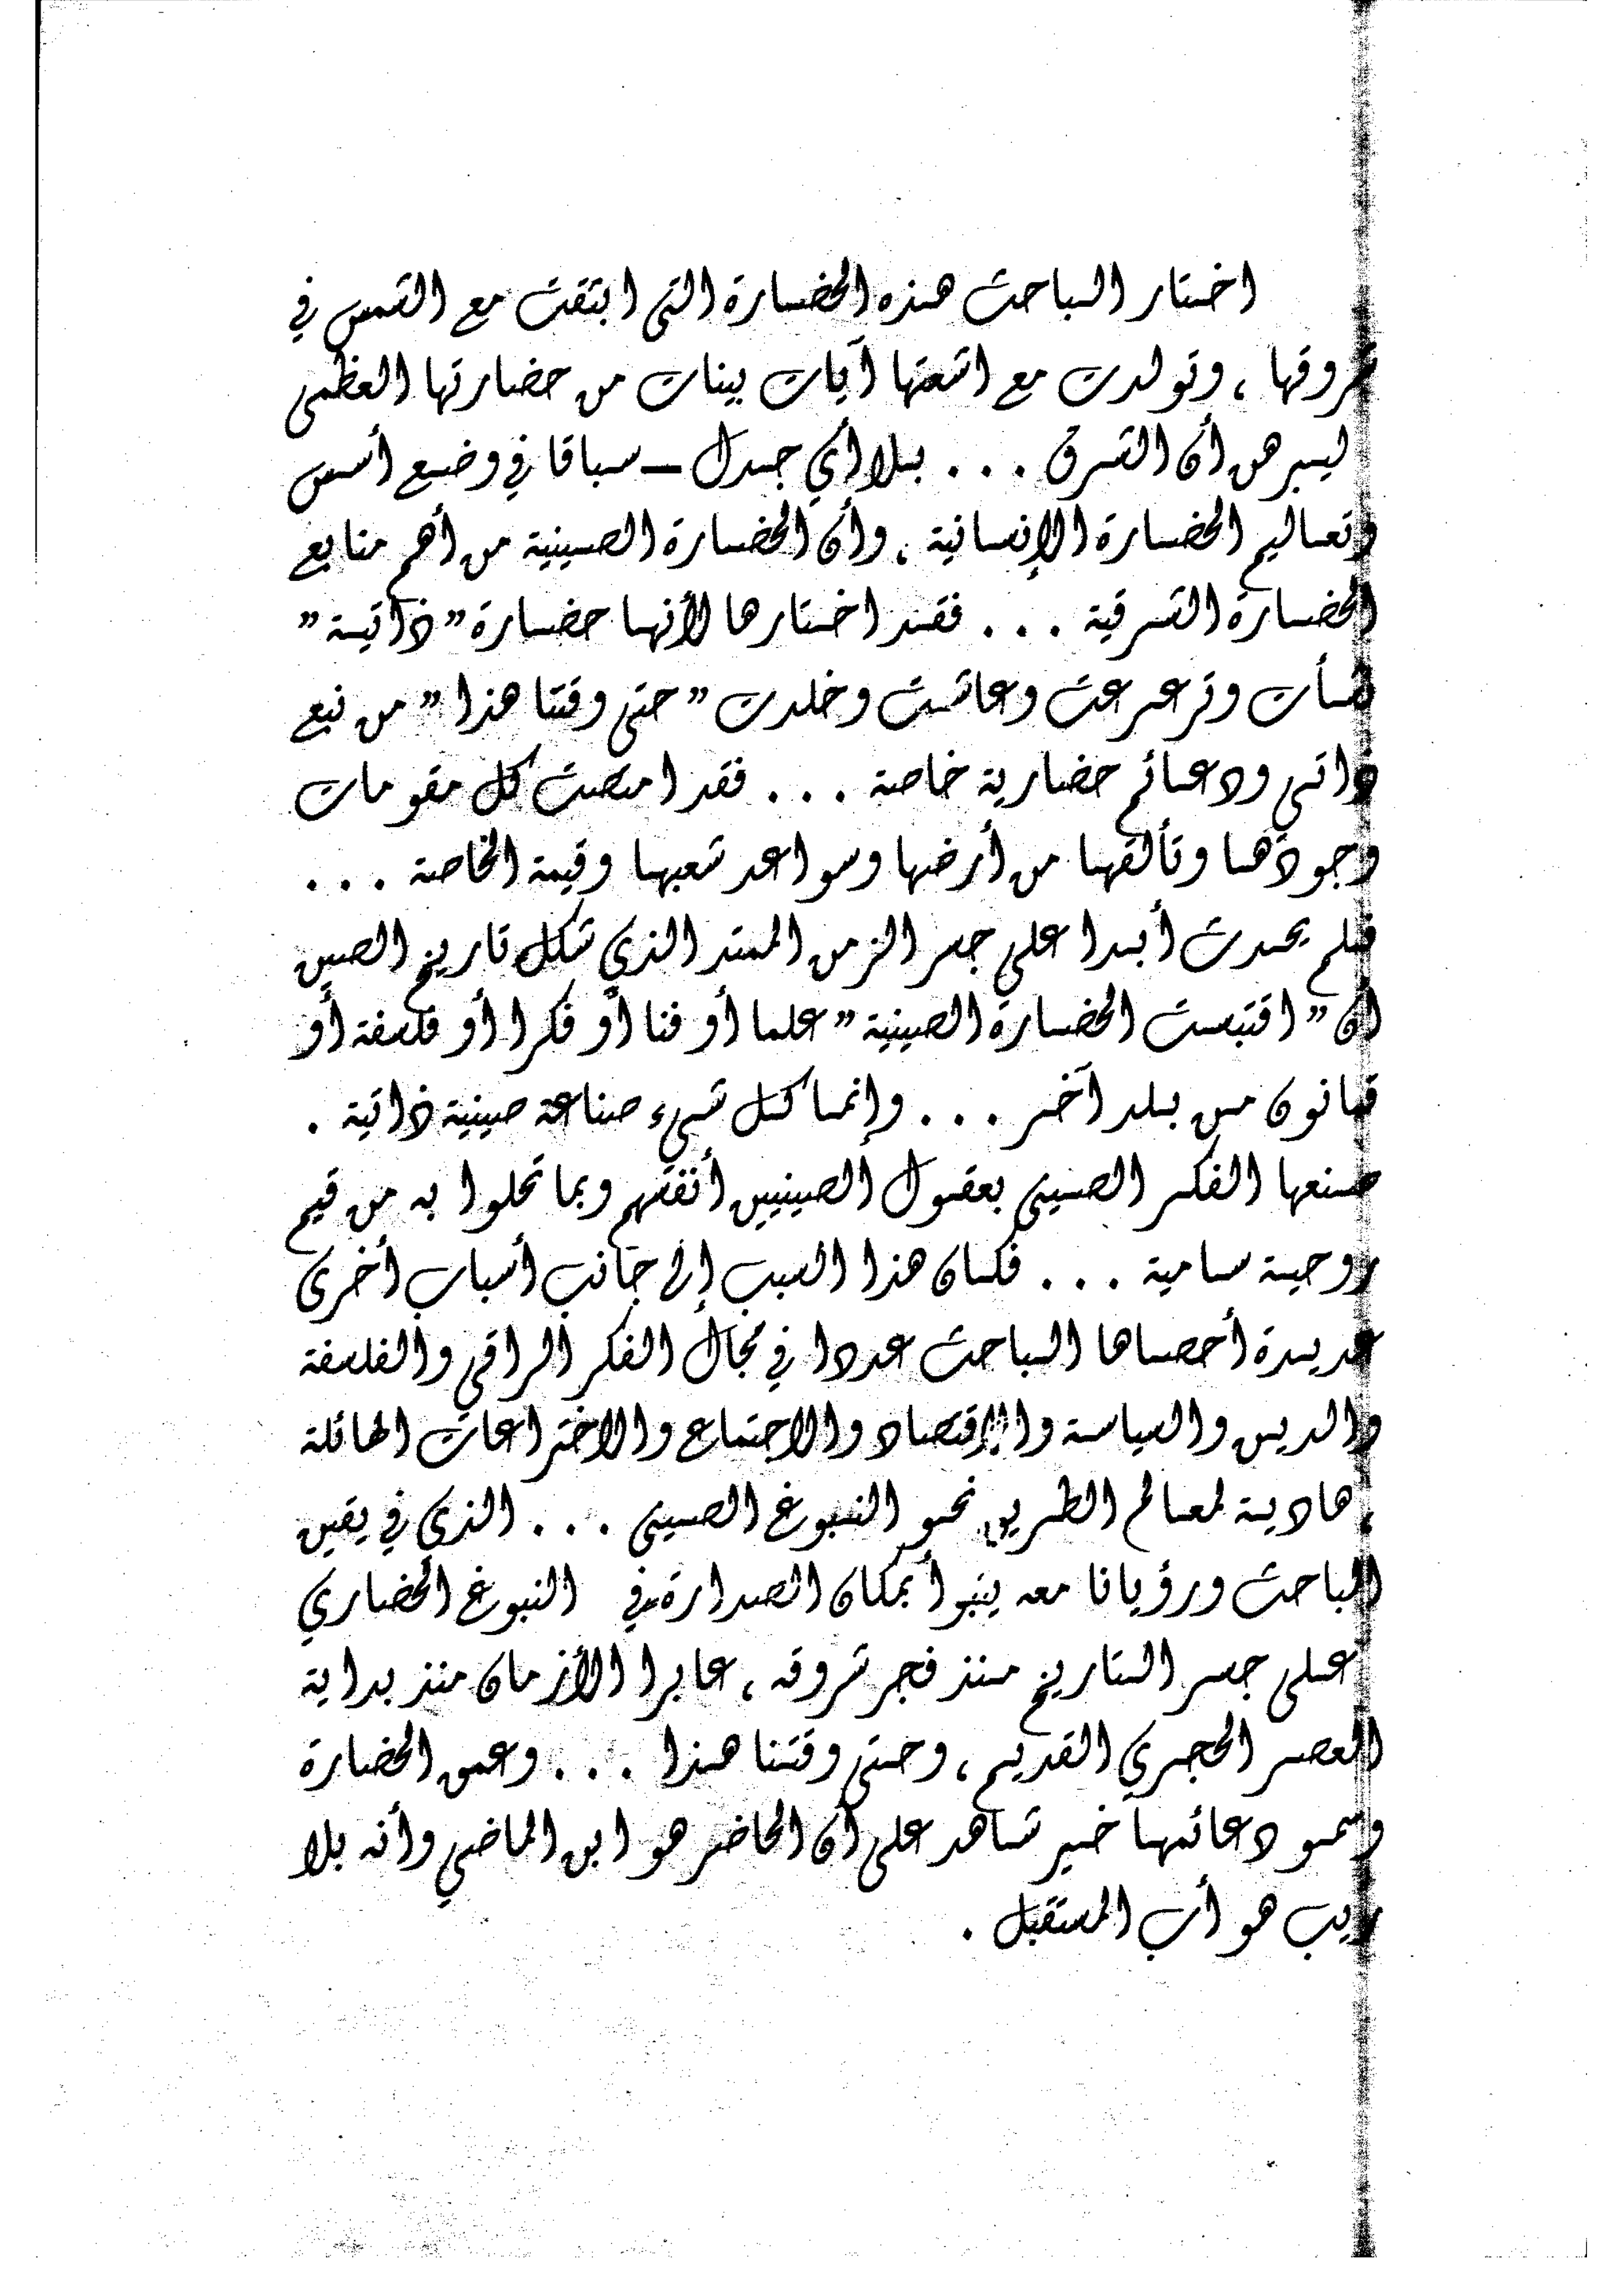 اختار الباحث هذه الحضارة التى ابتقت مع الشمس في
شروقها ، وتولدت مع اشعتها آيات بينات من حضارتها العظمى
ليبرهن أن الشرق ... بلا أي جدل – سباقا في وضع أسس
وتعاليم الحضارة الإنسانية ، وأن الحضارة الصينية من أهم منابع
الحضارة الشرقية ... فقد اختارها لأنها حضارة "ذاتية"
نشأت وترعرعت وعاشت وخلدت "حتى وقتنا هذا" من نبع
ذاتى ودعائم حضارية خاصة ... فقد امتصت كل مقومات
وجودها وتألقها من أرضها وسواعد شعبها وقيمة الخاصة ...
فلم يحدث أبدا على جسر الزمن الممتد الذي شكل تاريخ الصين
أن "اقتبست الحضارة الصينية" علما أو فنا أو فكرا أو فلسفة أو
قانون من بلد آخر ... وإنما كل شىء صناعة صينية ذاتية .
صنعها الفكر الصينى بعقول الصينيين أنفسهم وبما تحلوا به من قيم
روحية سامية ... فكان هذا السبب إلى جانب أسباب أخرى
عديدة أحصاها الباحث عددا في مجال الفكر الراقى والفلسفة
والدين والسياسة والاقتصاد والاجتماع والاختراعات الهائلة
هادية لمعالم الطريق نحو النبوغ الصينى ... الذى في يقين
الباحث ورؤيانا معه يتبوأ بمكان الصدارة في النبوغ الحضاري
على جسر التاريخ منذ فجر شروقه ، عابرا الأزمان منذ بداية
العصر الحجري القديم ، وحتى وقتنا هذا ... وعمق الحضارة
وسمو دعائمها خير شاهد على أن الحاضر هو ابن الماضي وأنه بلا
ريب هو أب المستقبل .